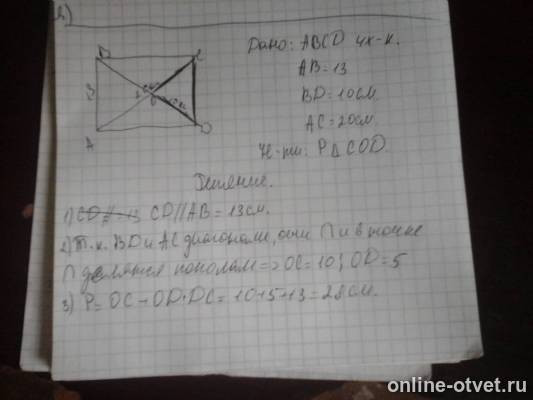 B
C
13
5см
10см
O
A
D
Дано: ABCD 4х-к.
AB=13
BD=10см.
AC=20см.
Н-ти: P△COD.
Решение.
1) CD//AB=13см.
2) Т.к. BD и AC диагонали, они ∩ и в точке
∩ делятся пополам=>OC=10; OD=5
3) P=OC+OD+DC=10+5+13=28см.
online-otvet.ru